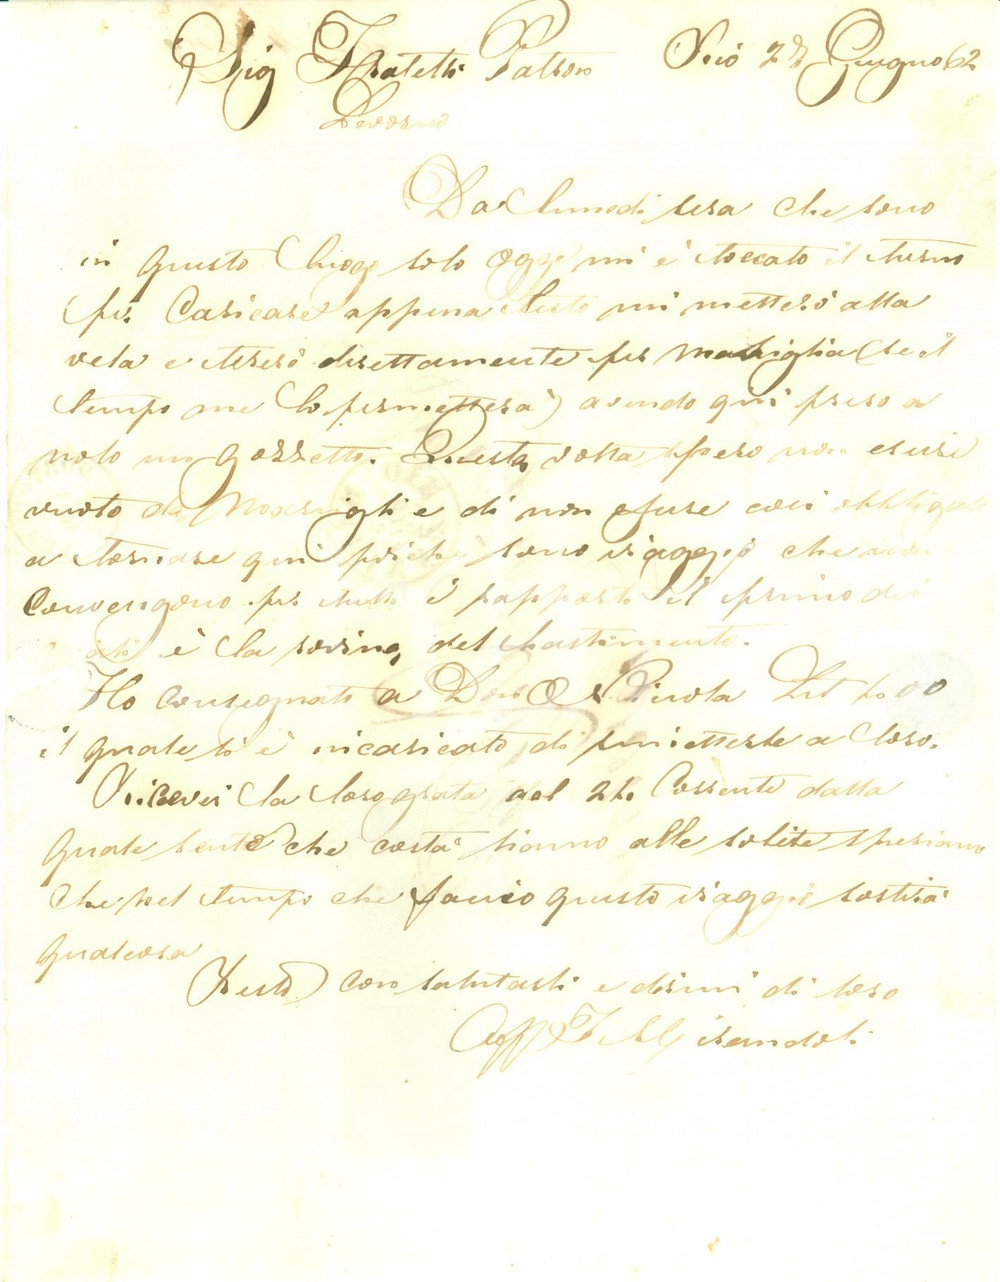 Sig Fratelli Pattono Rio 28 Giugno 62
Livorno
Da Lunedi sera che sono
in questo Luogo solo oggi mi è toccato il turno
per Caricare appena lesto mi metterò alla
vela e tirerò direttamente per Marsiglia (se il
tempo me lo permetterà) avendo qui preso a
nolo un gozzetto. Questa volta spero non escire
vuoto da Marsiglia e di non essere così obbligato
a tornare qui poichè sono viaggi che non
Convengono per tutti i rapporti il primo dei
quali è la rovina del bastimento.
Ho consegnato a Don Pinola Lit
il quale si è incaricato di rimetterle a loro.
Ricevei la loro grata del 24 Corrente dalla
quale sento che costà siamo alle solite speriamo
che nel tempo che faccio questo viaggio sortirà
qualcosa
Resto con salutarli e dirmi di loro
Aff Mirandoli